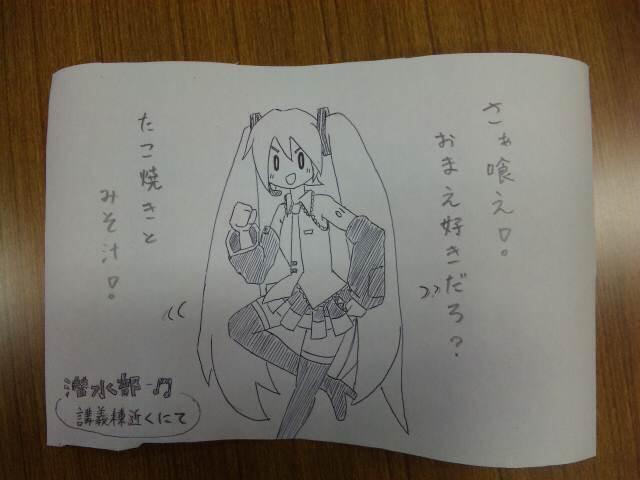 さぁ喰え!
おまえ好きだろ?
たこ焼きと
みそ汁!
潜水部♫
講義棟近くにて